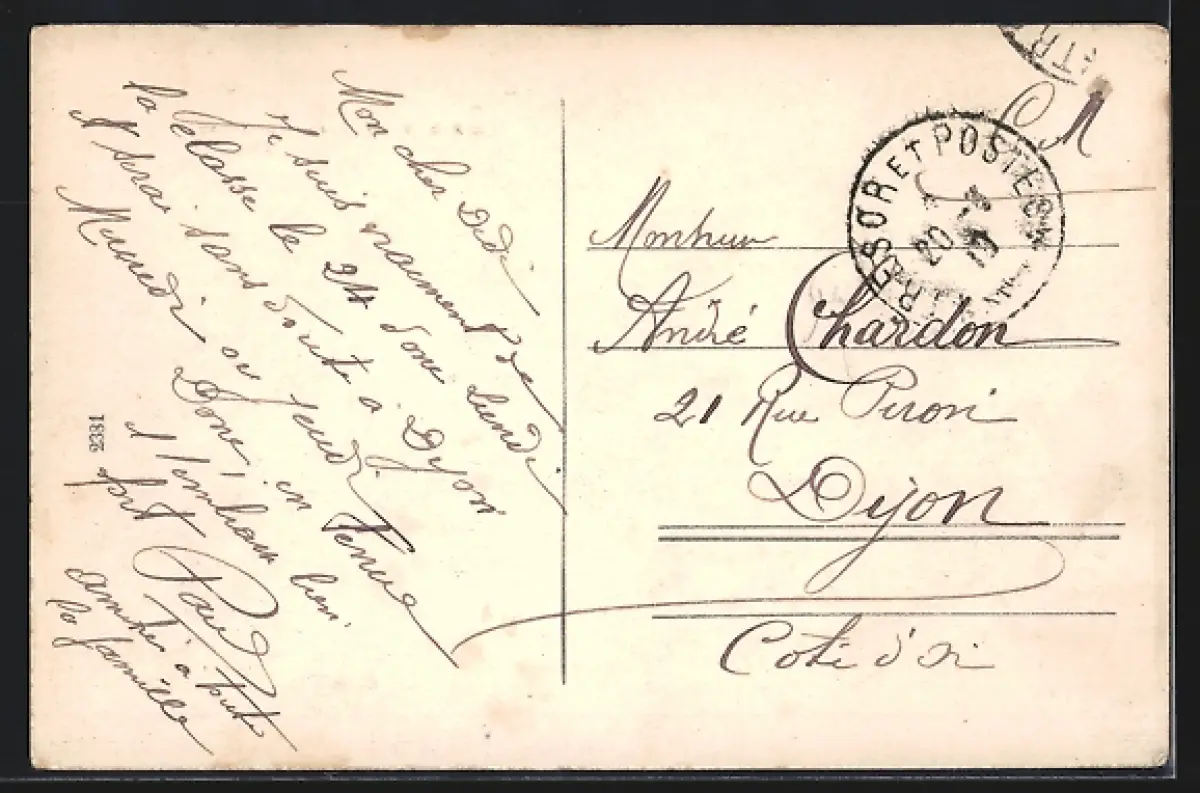 Mon cher Dédé
Je suis vraiment de
la classe le 24 donc Lundi
et serai sans doute à Dijon
Mercredi ou Jeudi
Donc, en tenue
bien.
Paul
amitié à toute
la famille
2381
TRESOR ET POSTES
20
19
F M
Monsieur
André Chardon
21 Rue Piron
Dijon
Cote d'Or